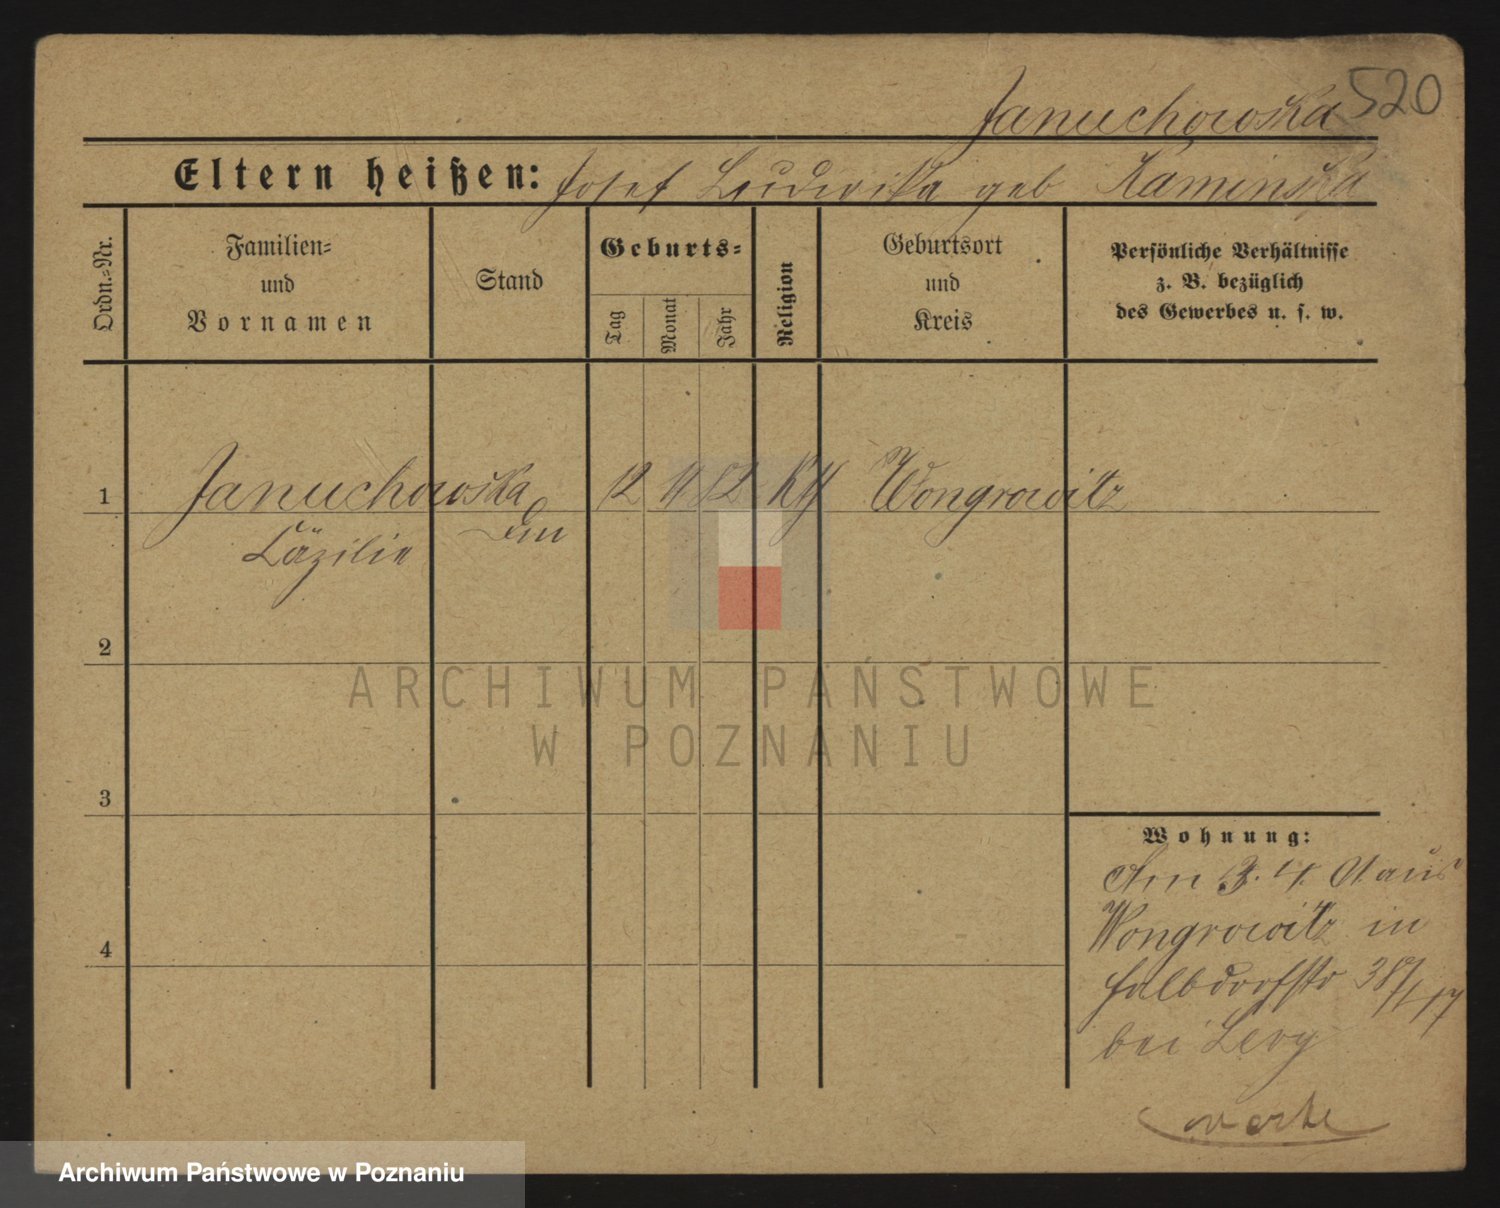 Januchowska 520
Eltern heißen: Josef Ludwika geb Kaminska
Ordn.-Nr.
Familien- und Vornamen
Stand
Geburts-
Tag
Monat
Jahr
Religion
Geburtsort und Kreis
Persönliche Verhältnisse
z. B. bezüglich
des Gewerbes u. s. w.
1 Januchowska 12 11 82 Kth Wongrowitz
Cäzilie
2
3
4
ARCHIWUM PAŃSTWOWE
W POZNANIU
Wohnung:
Am 3. 4. 01 aus
Wongrowitz in
38/
bei Levy
Archiwum Państwowe w Poznaniu